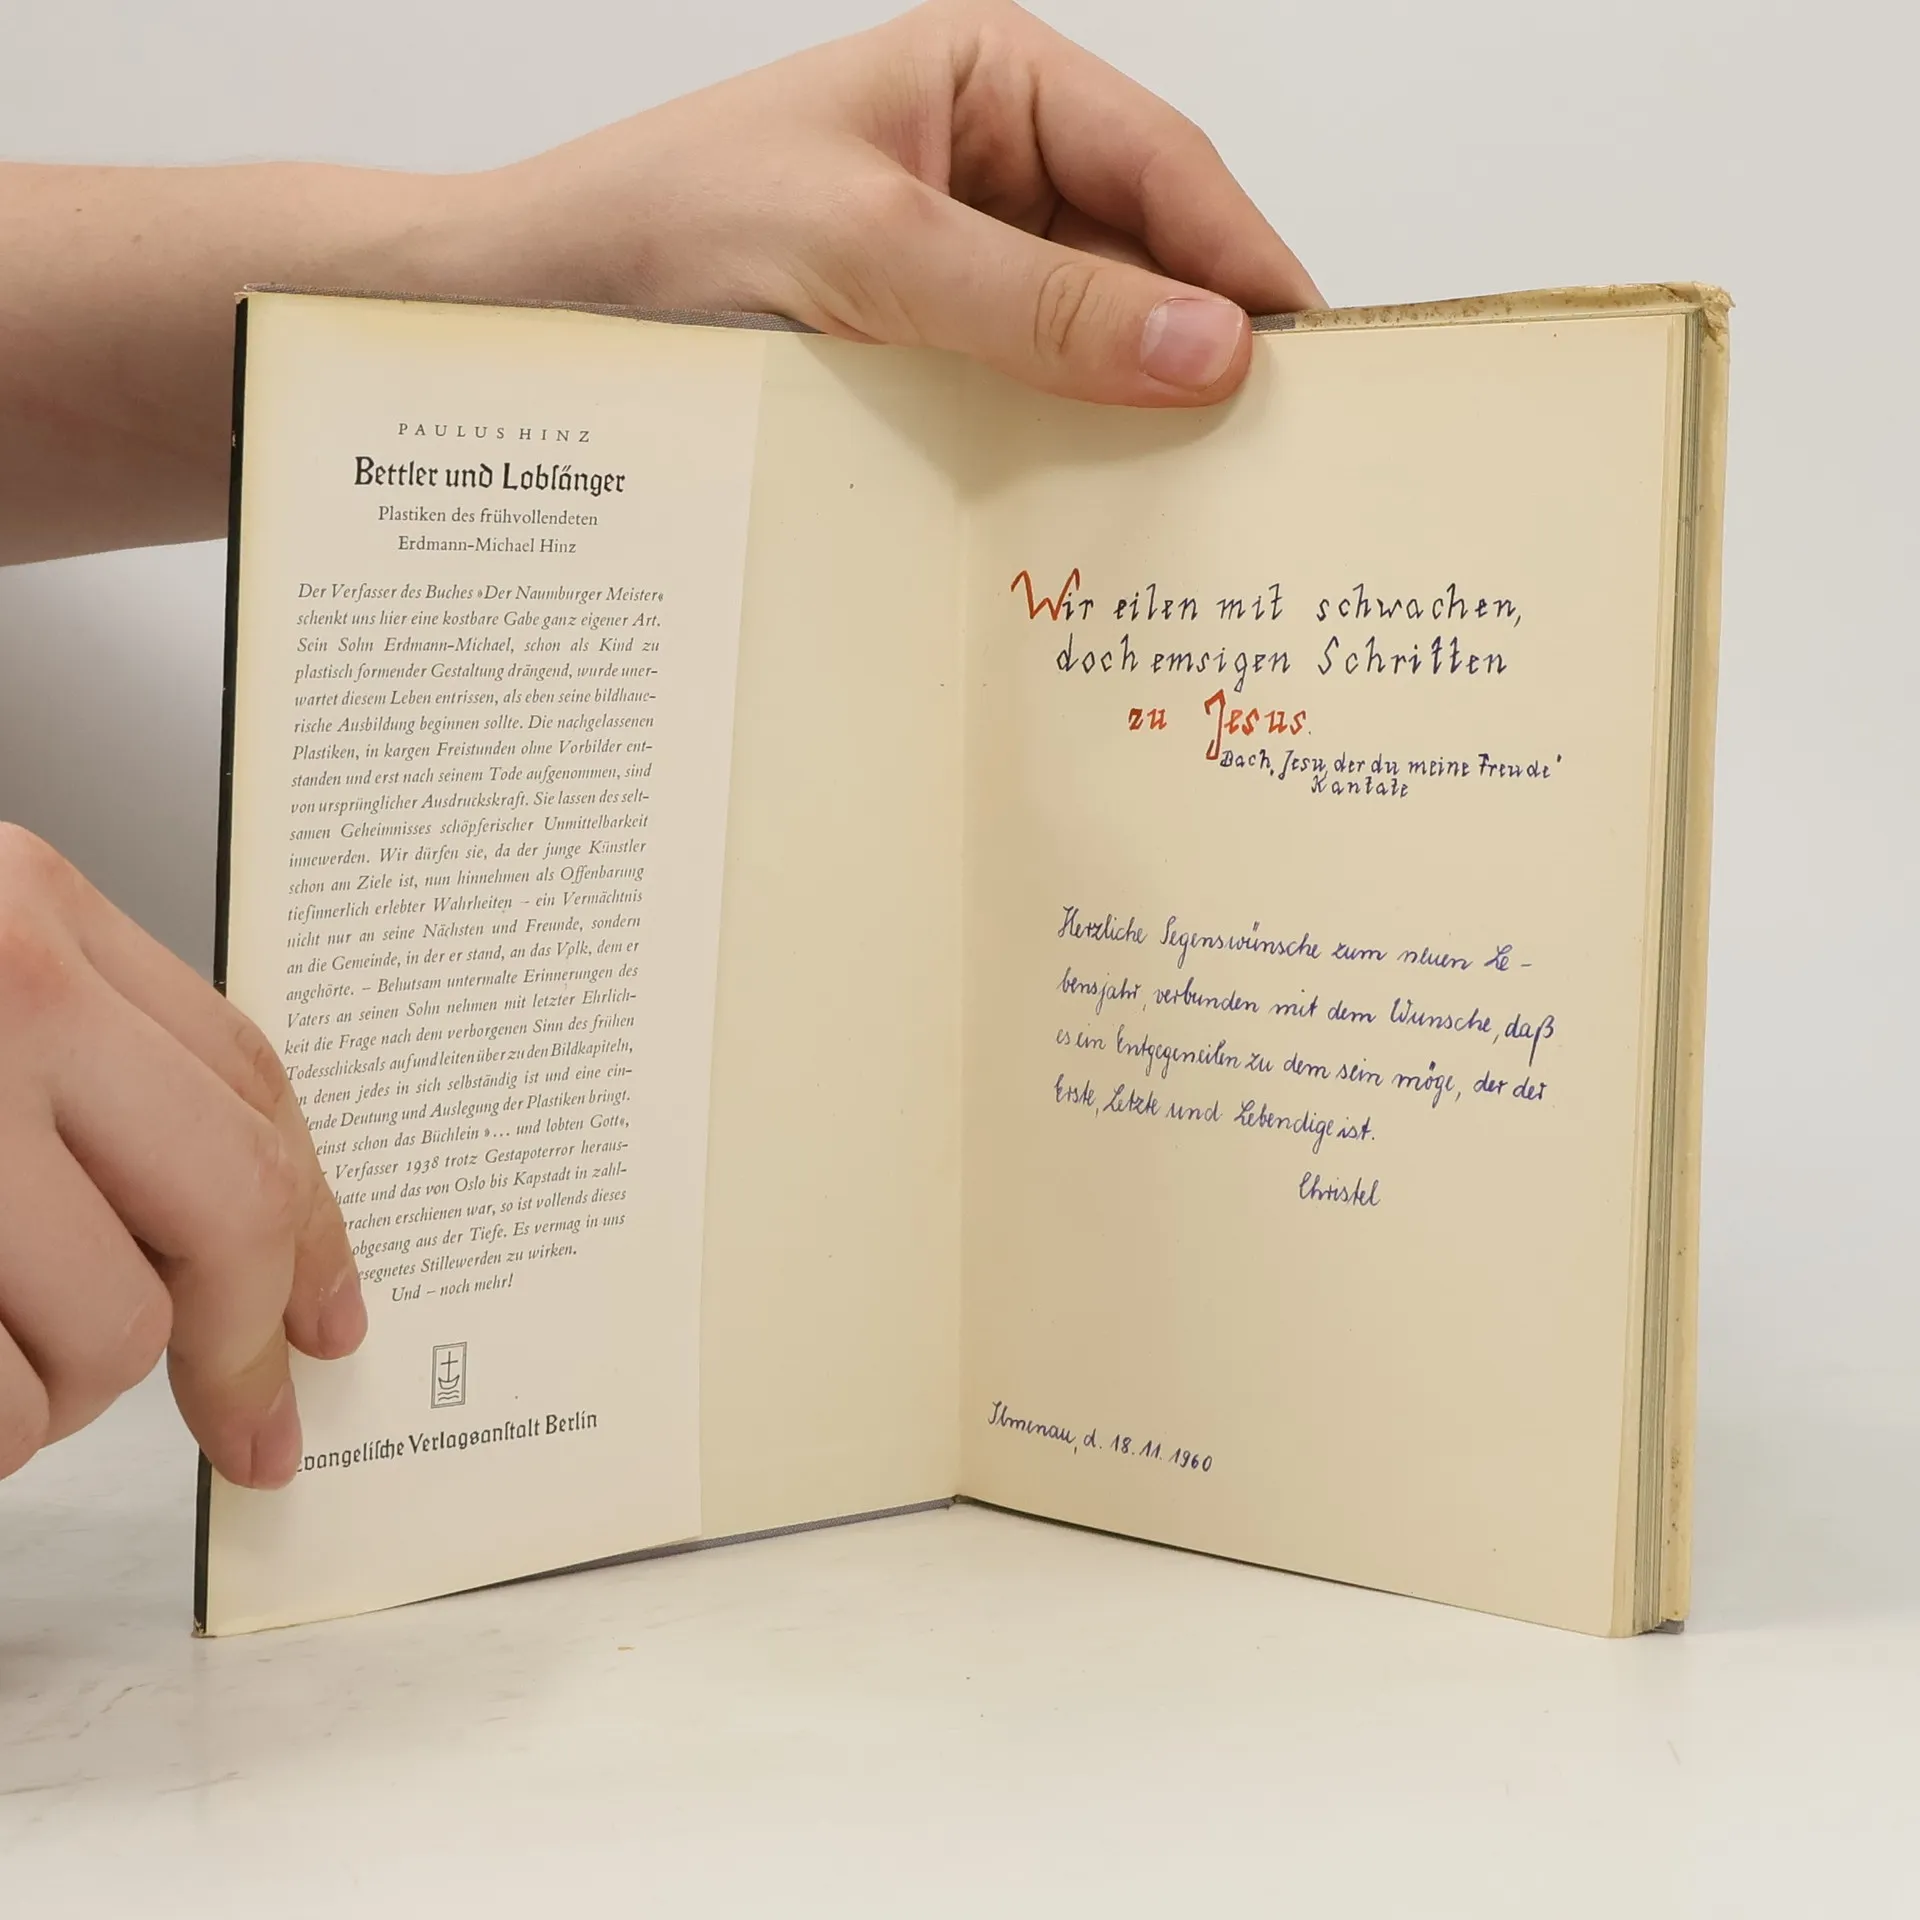 PAULUS HINZ
Bettler und Lobſänger
Plastiken des frühvollendeten
Erdmann-Michael Hinz
Der Verfasser des Buches »Der Naumburger Meister«
schenkt uns hier eine kostbare Gabe ganz eigener Art.
Sein Sohn Erdmann-Michael, schon als Kind zu
plastisch formender Gestaltung drängend, wurde uner-
wartet diesem Leben entrissen, als eben seine bildhaue-
rische Ausbildung beginnen sollte. Die nachgelassenen
Plastiken, in kargen Freistunden ohne Vorbilder ent-
standen und erst nach seinem Tode aufgenommen, sind
von ursprünglicher Ausdruckskraft. Sie lassen des selt-
samen Geheimnisses schöpferischer Unmittelbarkeit
innewerden. Wir dürfen sie, da der junge Künstler
schon am Ziele ist, nun hinnehmen als Offenbarung
tiefinnerlich erlebter Wahrheiten – ein Vermächtnis
nicht nur an seine Nächsten und Freunde, sondern
an die Gemeinde, in der er stand, an das Volk, dem er
angehörte. – Behutsam untermalte Erinnerungen des
Vaters an seinen Sohn nehmen mit letzter Ehrlich-
keit die Frage nach dem verborgenen Sinn des frühen
Todesschicksals auf und leiten über zu den Bildkapiteln,
n denen jedes in sich selbständig ist und eine ein-
lende Deutung und Auslegung der Plastiken bringt.
einst schon das Büchlein »... und lobten Gott«,
Verfasser 1938 trotz Gestapoterror heraus-
hatte und das von Oslo bis Kapstadt in zahl-
prachen erschienen war, so ist vollends dieses
obgesang aus der Tiefe. Es vermag in uns
esegnetes Stillewerden zu wirken.
Und – noch mehr!
vangeliſche Verlagsanſtalt Berlin
Wir eilen mit schwachen,
doch emsigen Schritten
zu Jesus.
Bach, „Jesu, der du meine Freude"
Kantate
Herzliche Segenswünsche zum neuen Le-
bensjahr, verbunden mit dem Wunsche, daß
es ein Entgegeneilen zu dem sein möge, der der
Erste, Letzte und Lebendige ist.
Christel
Ilmenau, d. 18. 11. 1960